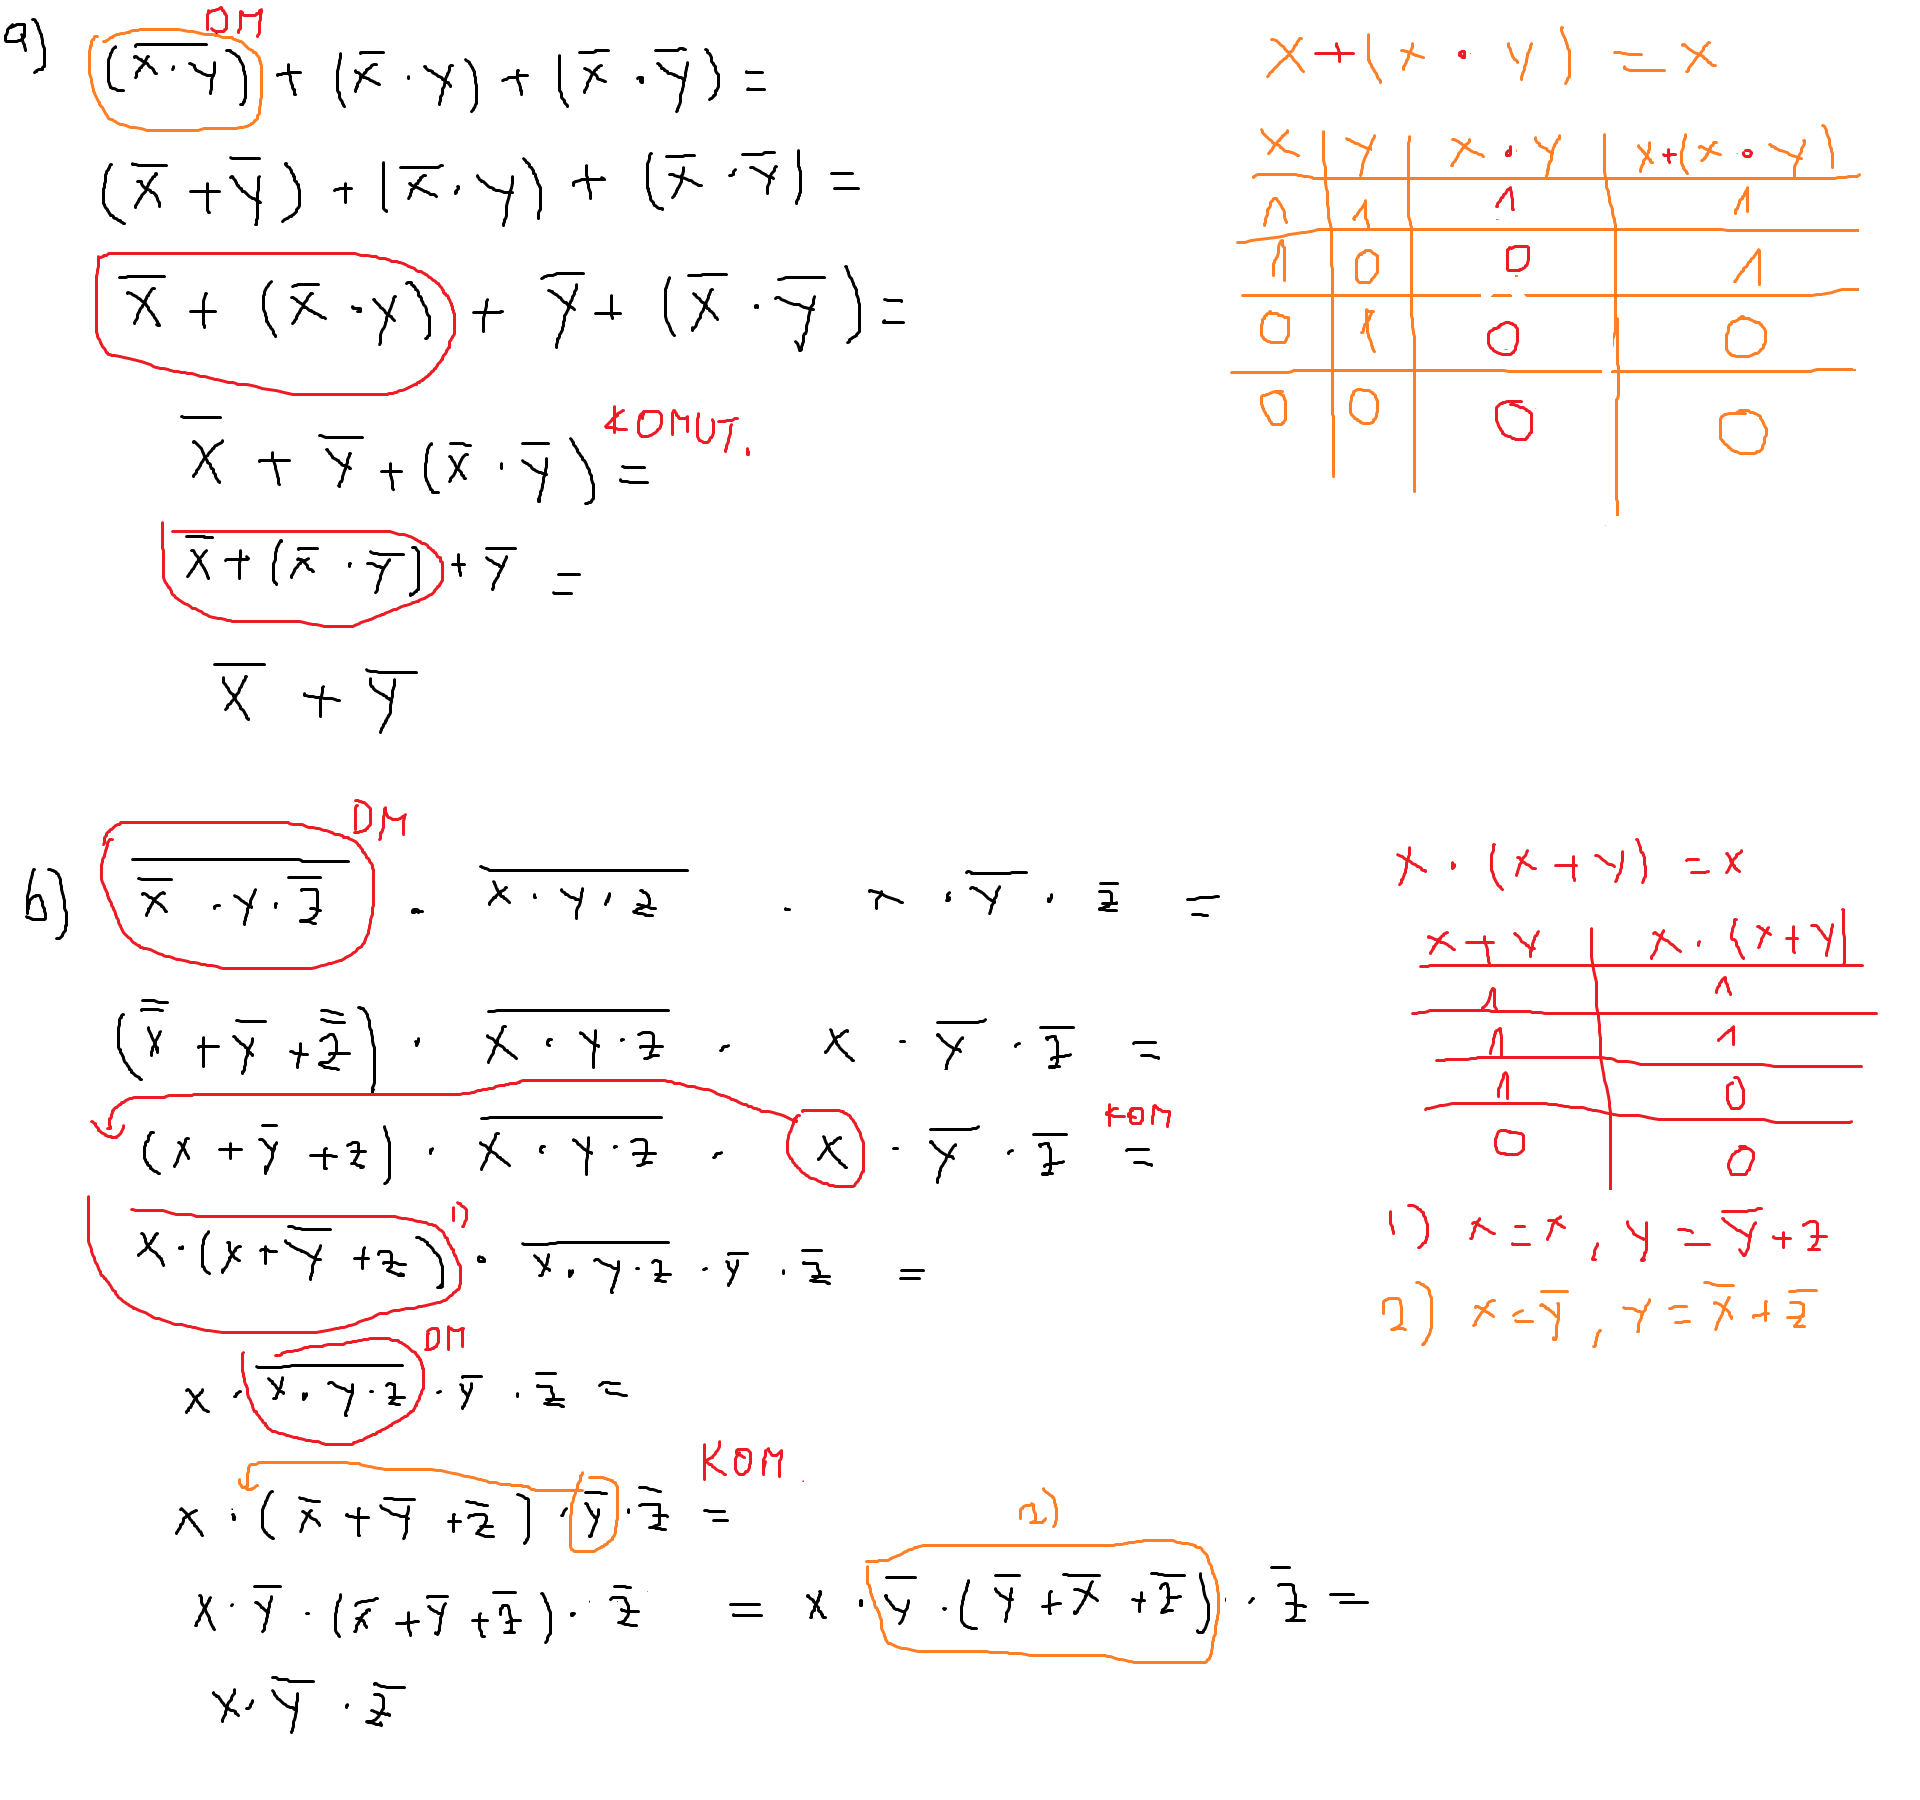 DM
a) (x̅·̅y̅) + (x̅ · y) + (x̅ · y̅) =
(x̅ + y̅) + (x̅ · y) + (x̅ · y̅) =
x̅ + (x̅ · y) + y̅ + (x̅ · y̅) =
x̅ + y̅ + (x̅ · y̅) = KOMUT.
x̅ + (x̅ · y̅) + y̅ =
x̅ + y̅
x + (x · y) = x
x | y | x · y | x + (x · y)
1 | 1 | 1 | 1
1 | 0 | 0 | 1
0 | 1 | 0 | 0
0 | 0 | 0 | 0
DM
b) \overline{x̅ · y · z̅} · \overline{x · y · z} · x · y̅ · z̅ =
(x̿ + y̅ + z̿) · \overline{x · y · z} · x · y̅ · z̅ =
(x + y̅ + z) · \overline{x · y · z} · x · y̅ · z̅ = KOM
x · (x + y̅ + z) 1) · \overline{x · y · z} · y̅ · z̅ =
DM
x · \overline{x · y · z} · y̅ · z̅ =
x · (x̅ + y̅ + z̅) · y̅ · z̅ = KOM
x · y̅ · (x̅ + y̅ + z̅) · z̅ = x · y̅ · (y̅ + x̅ + z̅) · z̅ =
2)
x · y̅ · z̅
x · (x + y) = x
x + y | x · (x + y)
1 | 1
1 | 1
1 | 0
0 | 0
1) x = x, y = y̅ + z
2) x = y̅, y = x̅ + z̅